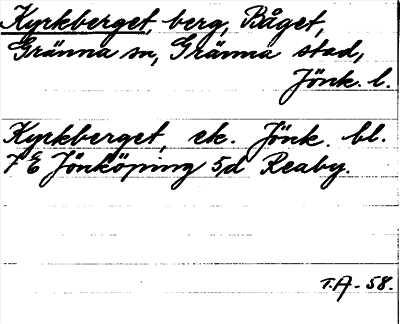 Kyrkberget, berg, Båget,
Gränna sn, Gränna stad,
Jönk. l.
Kyrkberget, ek. Jönk. bl.
7 E Jönköping 5,d Reaby.
T.A-58.